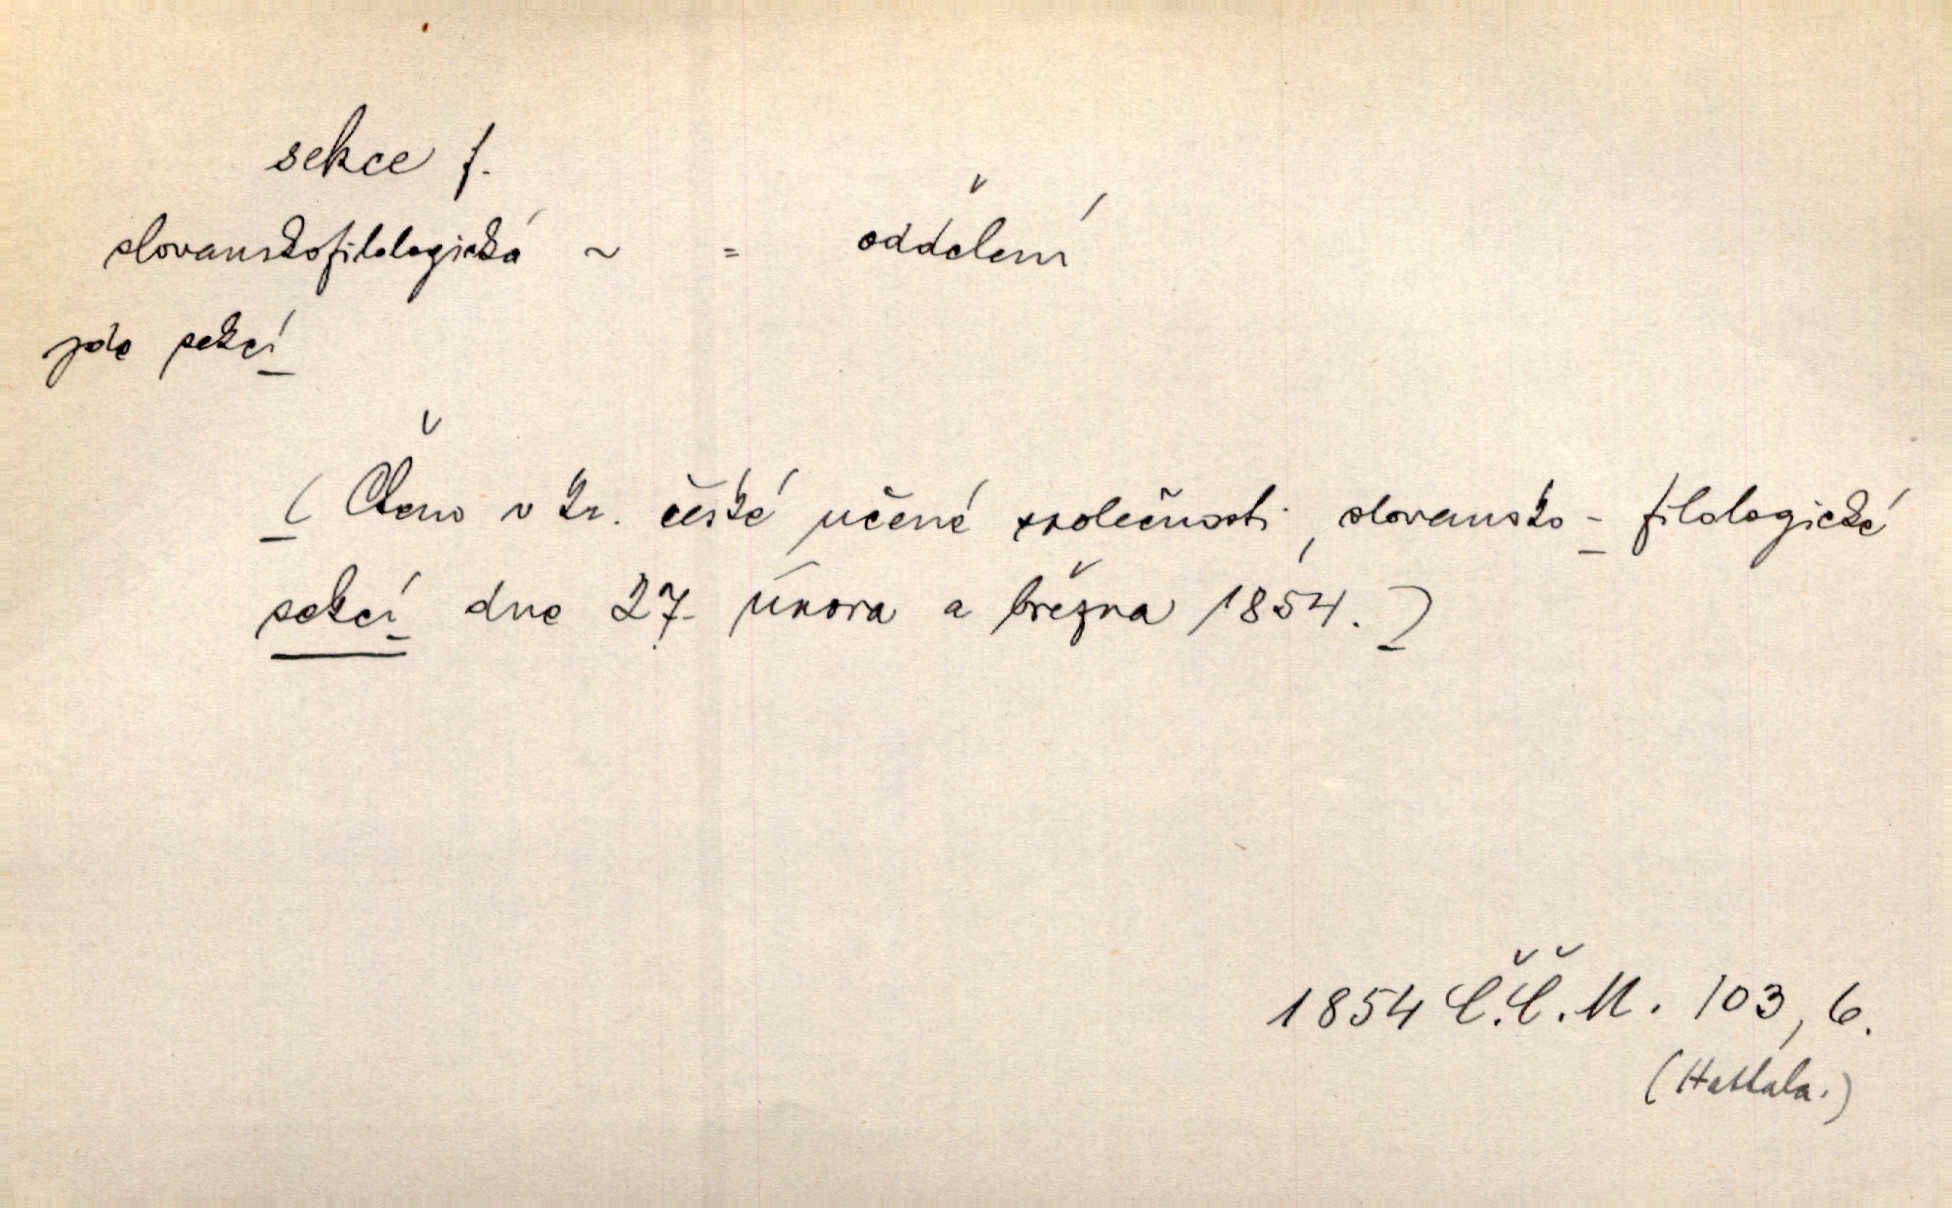 sekce f.
slovanskofilologická ~ = oddělení
zde sekcí
(Čteno v kr. české učené společnosti, slovansko-filologické
sekcí dne 27. února a března 1854.)
1854 Č.Č.M. 103, 6.
(Hattala.)